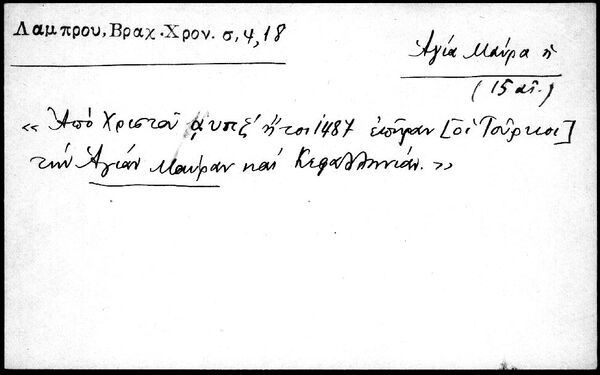 Λαμπρου, Βραχ. Χρον. σ. 4, 18
Ἁγία Μαύρα ἡ
(15 αἰ.)
« Ἀπό Χριστοῦ ͵αυπζ´ ἤτοι 1487 ἐπῆραν [οἱ Τοῦρκοι]
τήν Ἁγιάν Μαύραν καί Κεφαλληνιάν. »